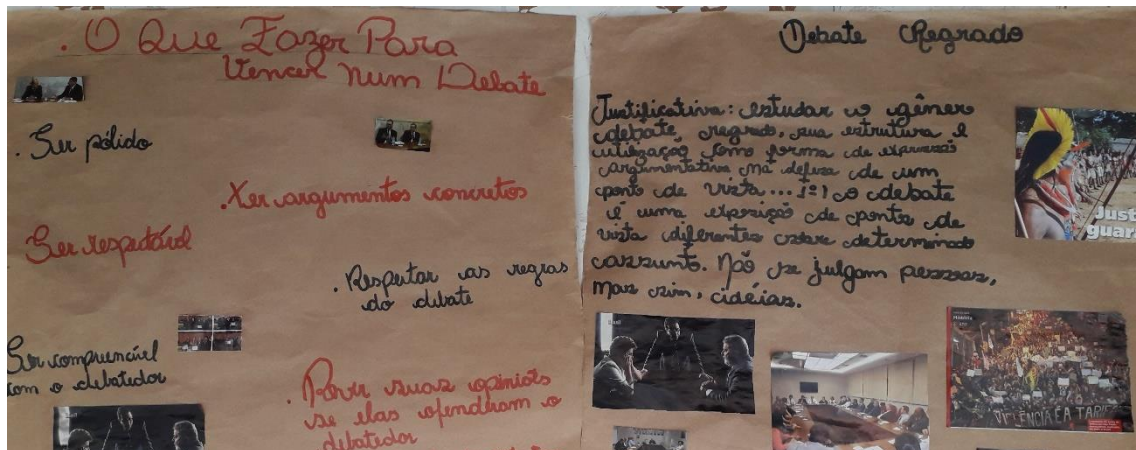 . O Que Fazer Para
Vencer Num Debate
. Ser pólido
. Ter argumentos concretos
Ser respeitável
. Respeitar as regras
do debate
Ser compreencível
com o debatedor
suas opiniões
se elas ofenderam o
debatedor
Debate Regrado
Justificativa: estudar o gênero
debate, regrado, sua estrutura e
utilização como forma de exposição
argumentativa na defesa de um
ponto de vista... 1º) o debate
é uma exposição de pontos de
vista diferentes sobre determinado
assunto. Não se julgam pessoas,
mas sim, idéias.
Just
guar
VIOLÊNCIA É A TARIFA